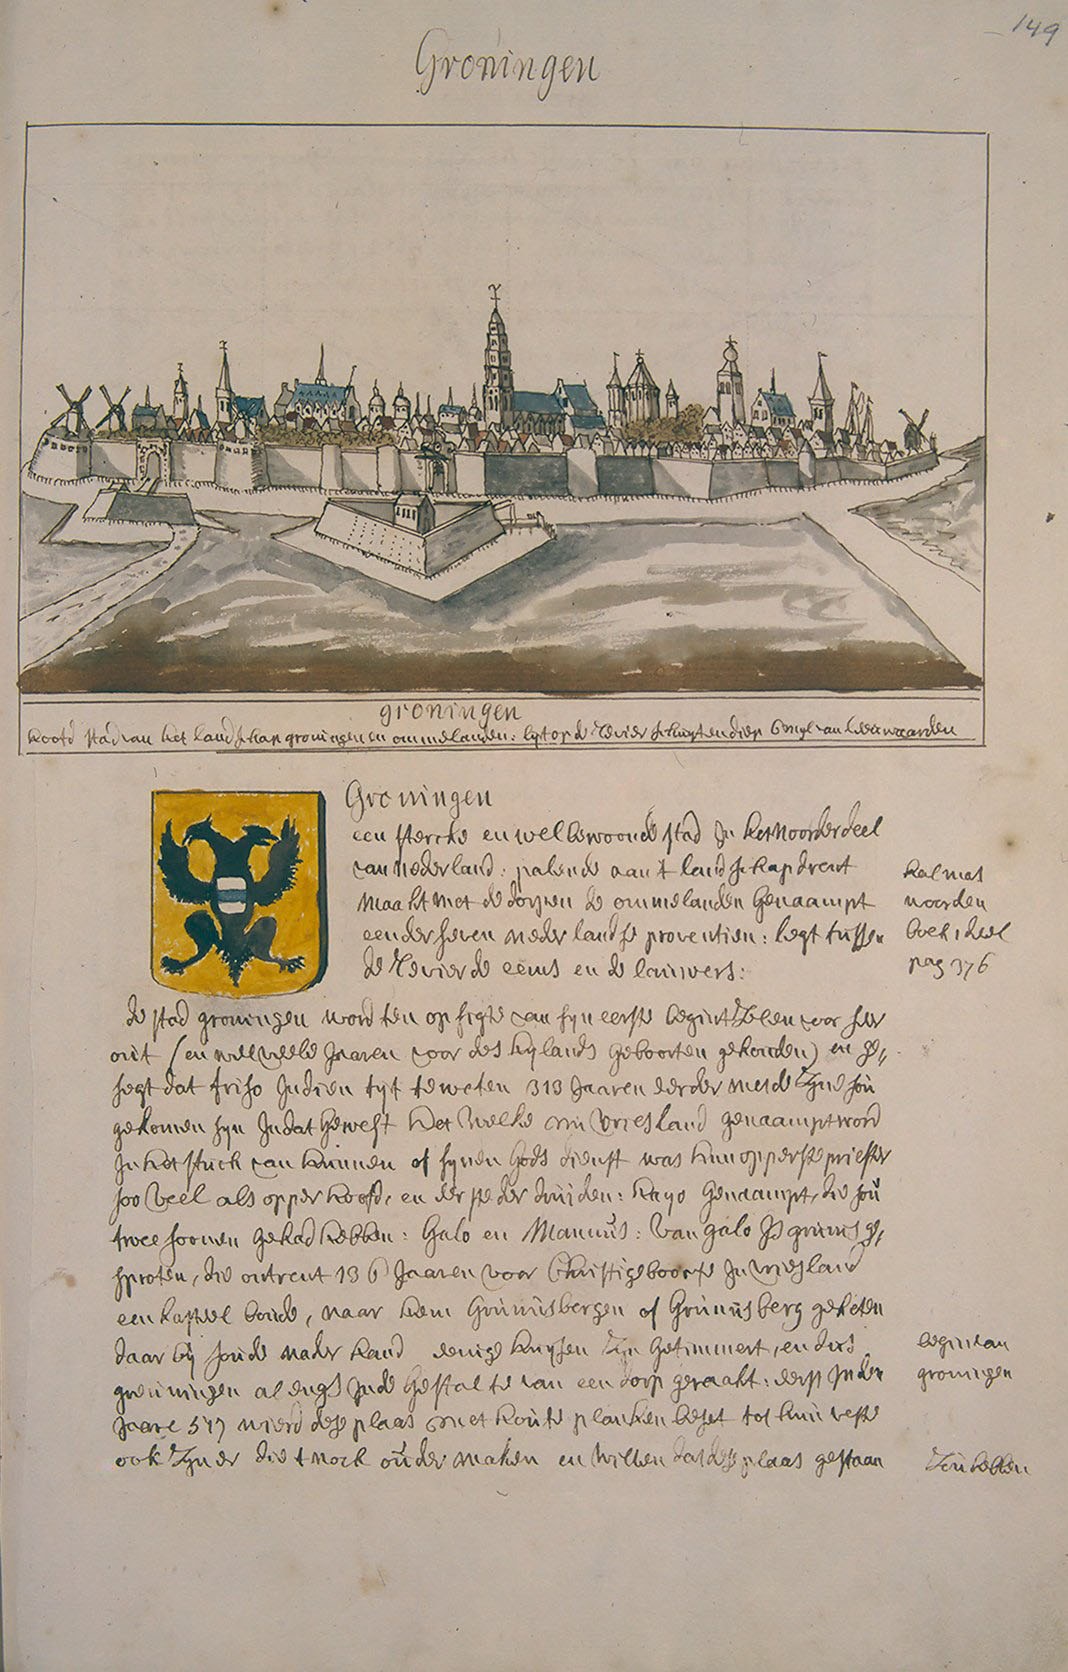 149
Groningen
groningen
hooft stad van het landschap groningen en ommelanden: lijt op de revier schuytendiep 6 myl van leeuwaarden
Groningen
een stercke en wel bewoonde stad In het Noorderdeel
van nederland: palende aan 't landschap drent
maakt met de dorpen de ommelanden genaampt
een der seven nederlandse provention: legt tussen
de revier de eems en de lauwers:
halmas
noorden
boek 1 deel
pag 376
de stad groningen word ten opsigte van syn eerste begintselen voor seer
out (en wel veele Jaaren voor des hylands geboorten gehouden) en ge,,
segt dat friso Indien tyt te weten 313 Jaaren eerder met de zyne sou
gekomen syn In dat gewest het welke nu Vriesland genaampt word
In het stuck van kunnen of synen Gods dienst was hun opperste priester
soo veel als opperhooft, en eerste der druiden: hayo genaampt, die sou
twee soonen gehad hebben: Galo en Mannus: van galo Is grunus ge,
sproten, die ontrent 136 Jaaren voor Christi geboorte In vriesland
een kasteel boude, naar hem Grunusbergen of Grunusberg geheten
daar by soude naderhand eenige huysen zyn getimmert, en dus
greuningen alengs In de gestalte van een dorp geraakt: eerst In den
begin van
groningen
Jaare 517 wierd dese plaas met houte planken beset tot hun veste
ook zyn er die 't noch ouder maken en willen dat dese plaas gestaan
zou hebben